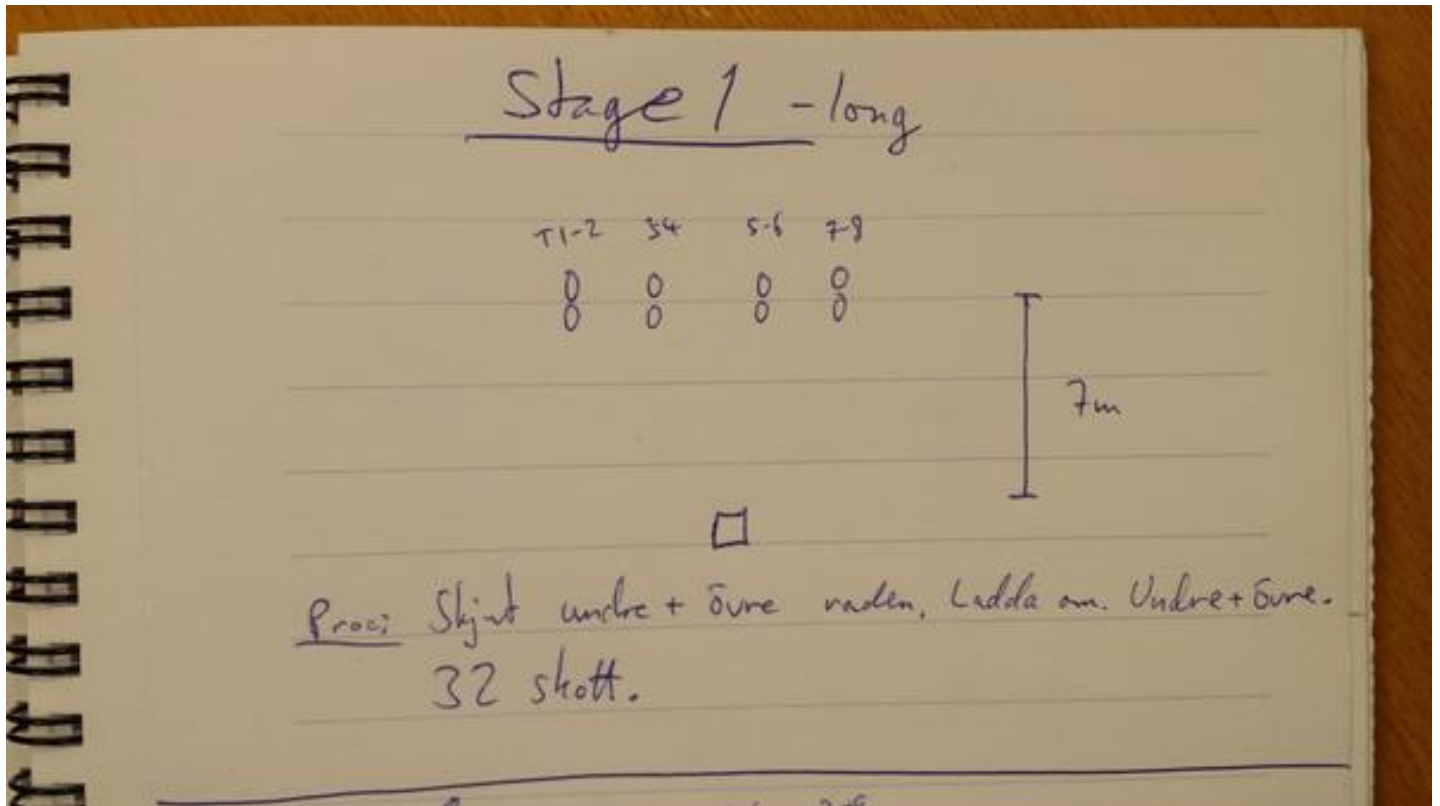 Stage 1 - long
T1-2 34 5-6 7-8
0 0 0 0
0 0 0 0
7m
Proc: Skjut undre + övre raden, Ladda om. Undre + övre.
32 skott.